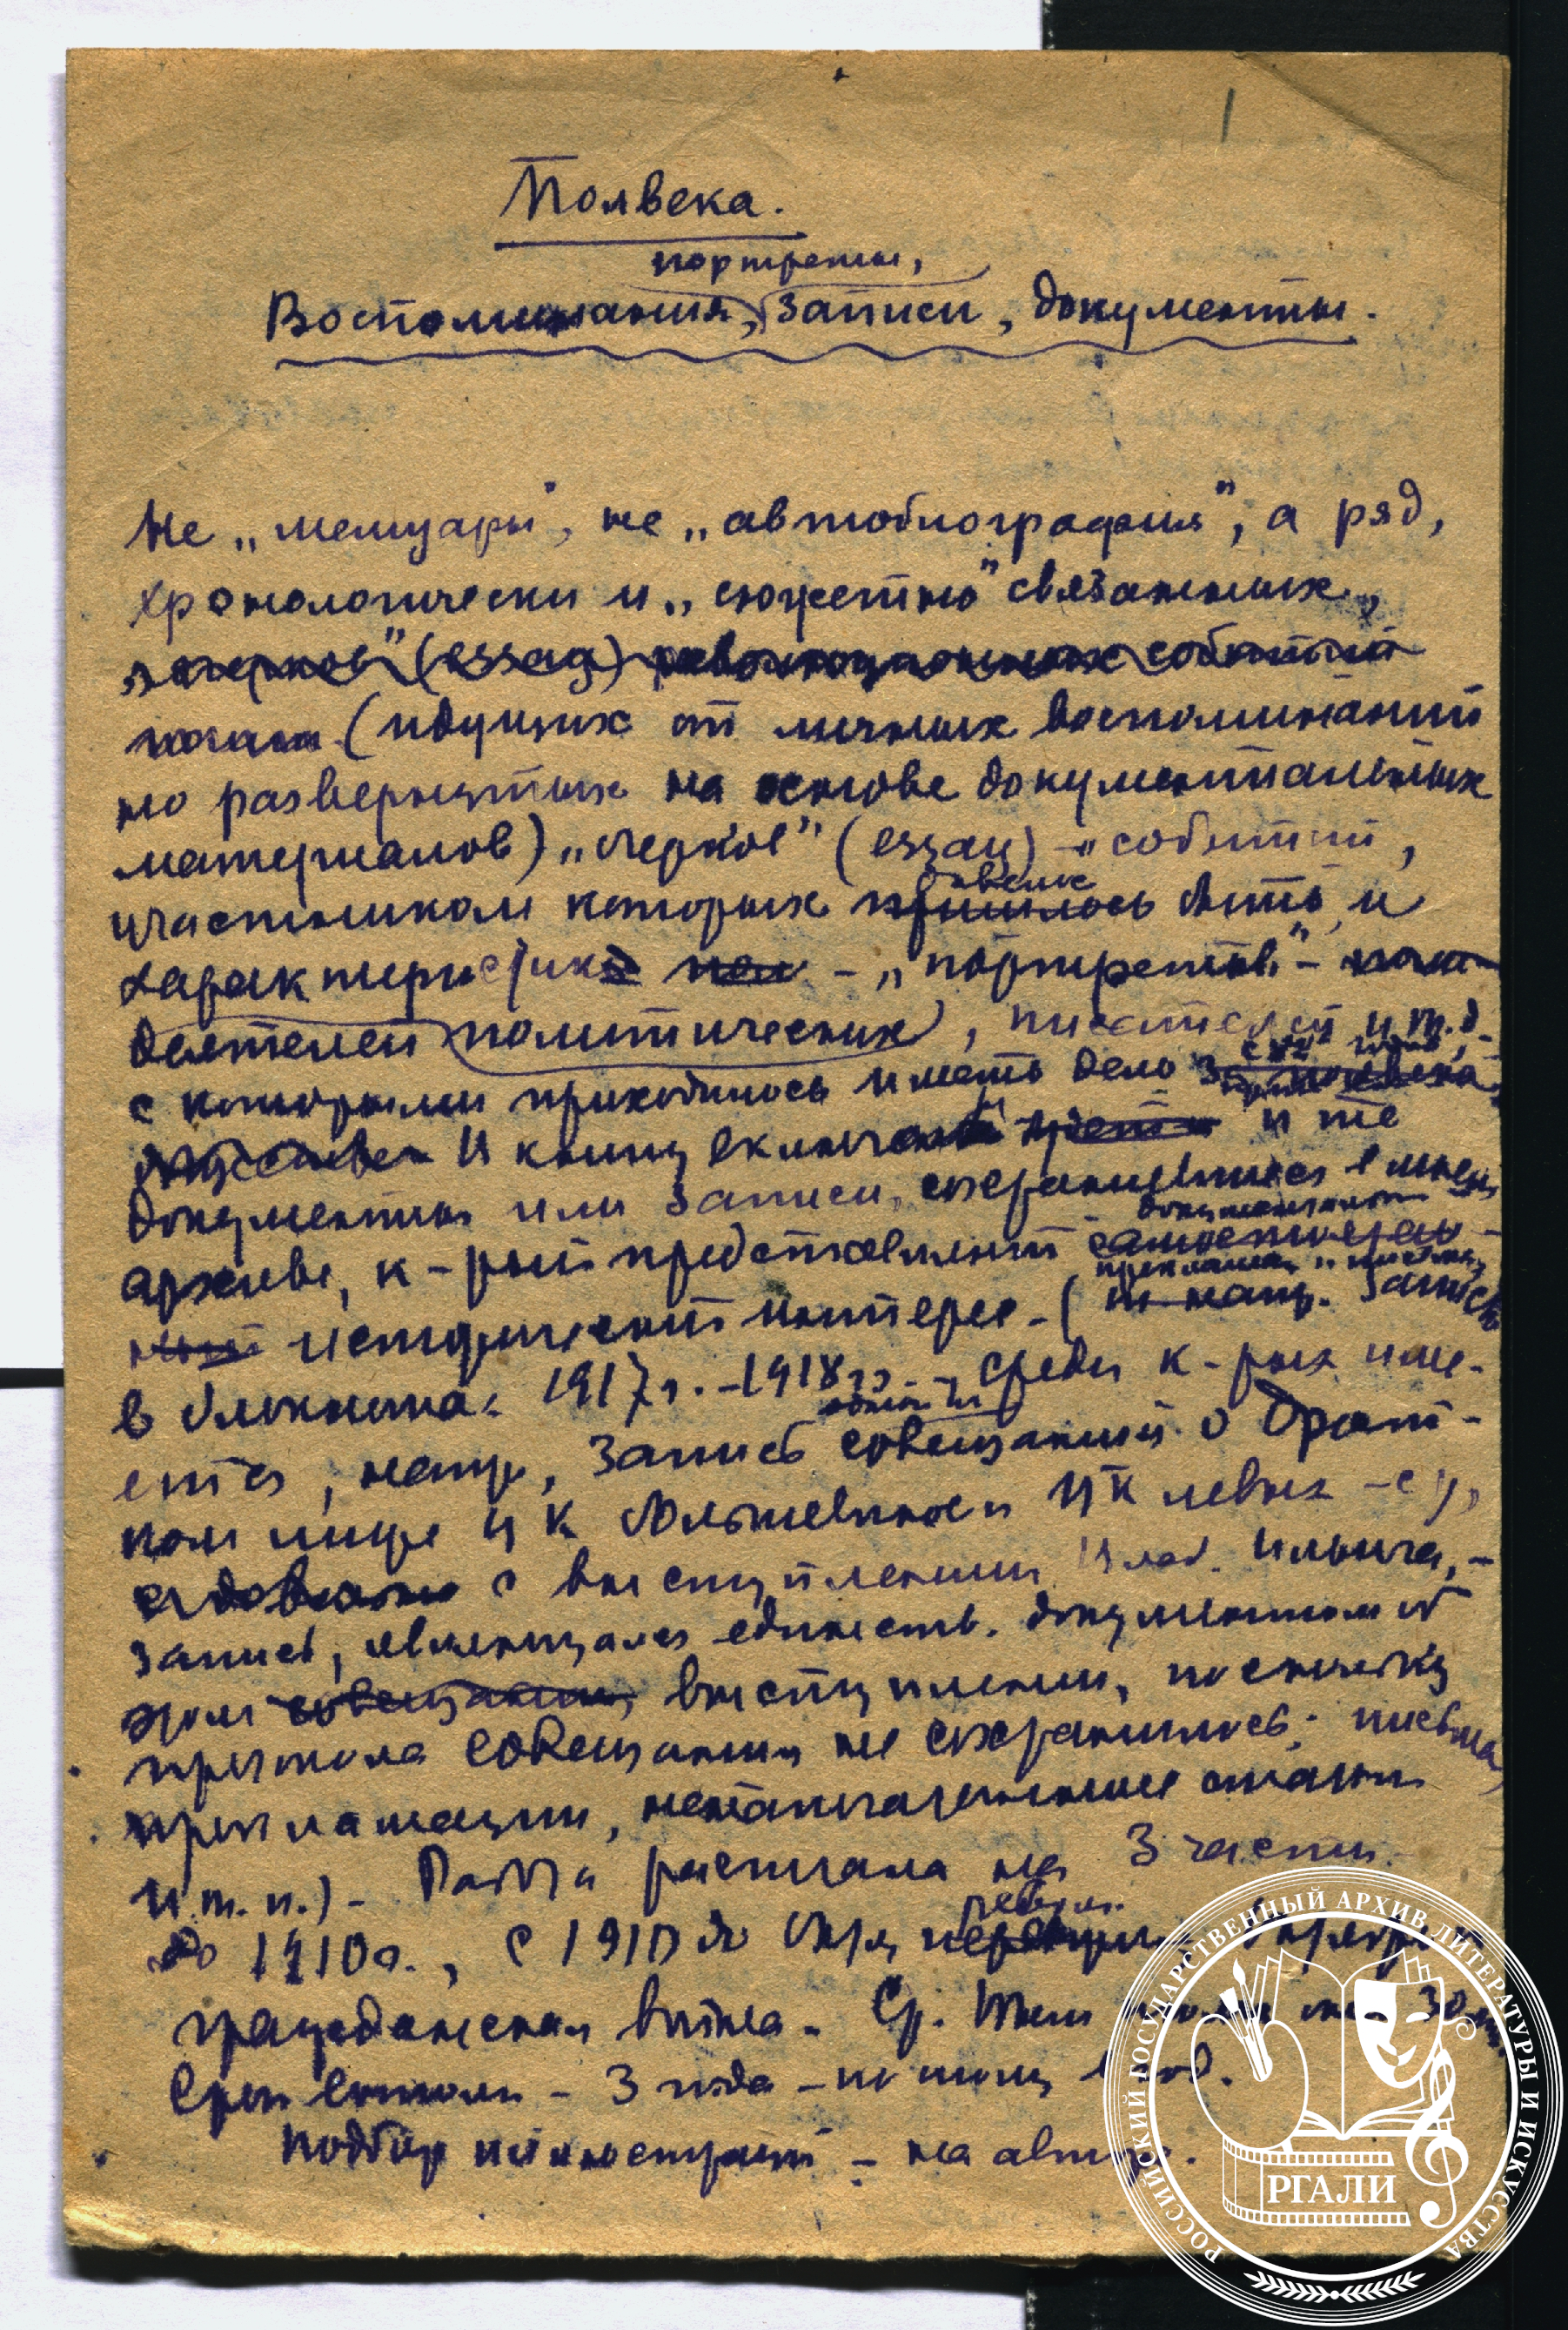 1
Полвека.
портреты,
Воспоминания, записи, документы.
Не „мемуары", не „автобиография", а ряд,
хронологически и „сюжетно" связанных,
„очерков" (essay) революционных событий
(идущих от личных воспоминаний
но развернутых на основе документальных
материалов) „очерков" (essay) – событий,
довелось
участником которых пришлось быть, и
характеристик – „портретов" –
деятелей политических, писателей и т.д.
с которыми приходилось иметь дело
И книгу включат и те
документы или записи, сохранившиеся в моем
архиве, к-рый представляет
прокламации и письма,
исторический интерес – (напр. записи
в блокнотах 1917 г. – 1918 гг. – среди к-рых име-
ется, напр., запись совещания о Брест-
ком мире ЦК большевиков и ЦК левых с-р,
с выступлением Влад. Ильича, –
запись, являющаяся единств. документом об
этом совещании, выступлении, поскольку
протокола совещания не сохранилось; письма,
прокламации, ненапечатанные статьи
и т. п.) – Работа расчитана на 3 части –
револ.
до 1910 г., с 1910 до
гражданская война.
Срок – 3 года – по тому в год.
Подбор иллюстраций – на авторе.
РОССИЙСКИЙ ГОСУДАРСТВЕННЫЙ АРХИВ ЛИТЕРАТУРЫ И ИСКУССТВА
РГАЛИ